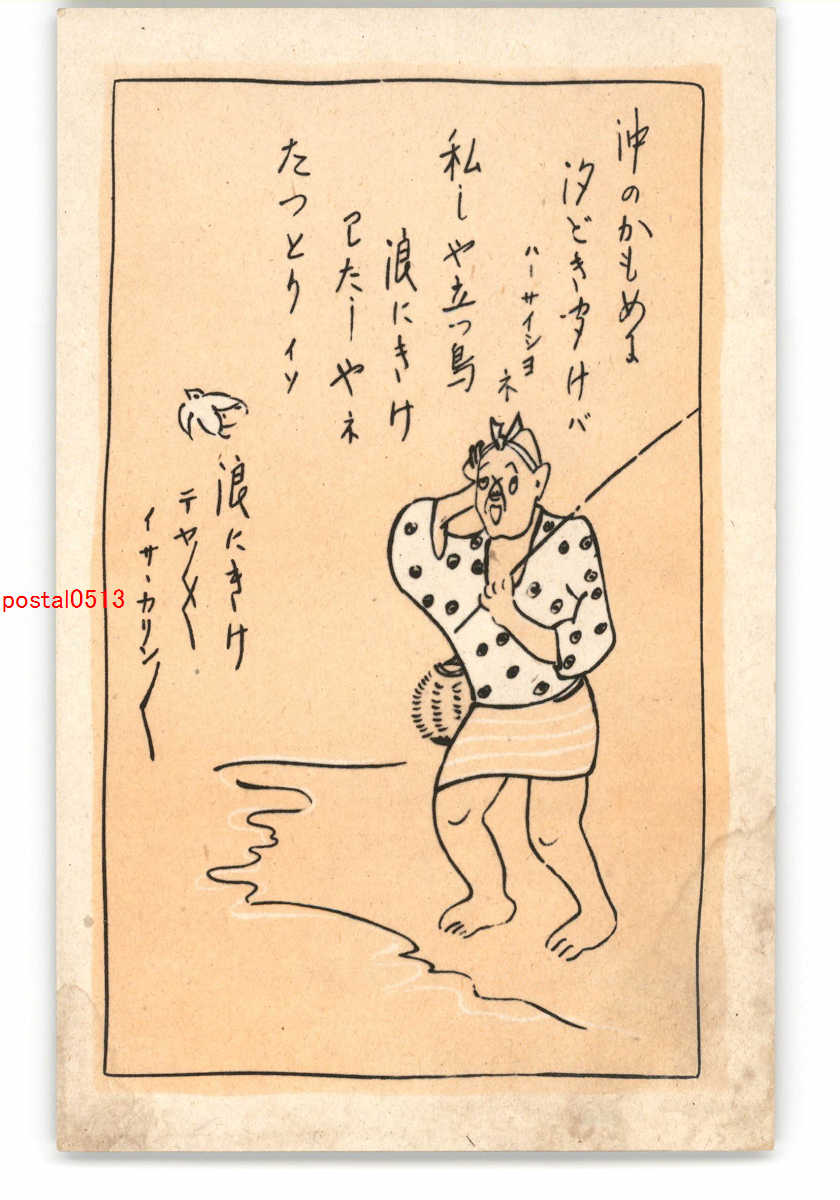 沖のかもめに
汐どき聞けバ
ハーサイショ
ネ
私しや立つ鳥
浪にきけ
わたしやネ
たつとりイソ
浪にきけ
テヤ〱〱
イサヽカリン〱
postal0513